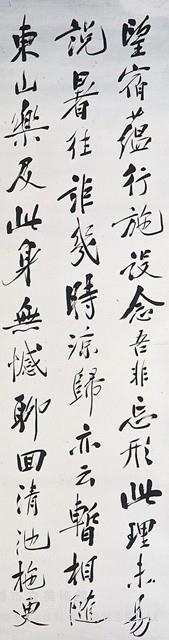 望宿蘊行施設念吾非忘形此理未易
說暑往詎幾時涼歸亦云暫相隨
東山樂及此身無憾聊回清池柂更